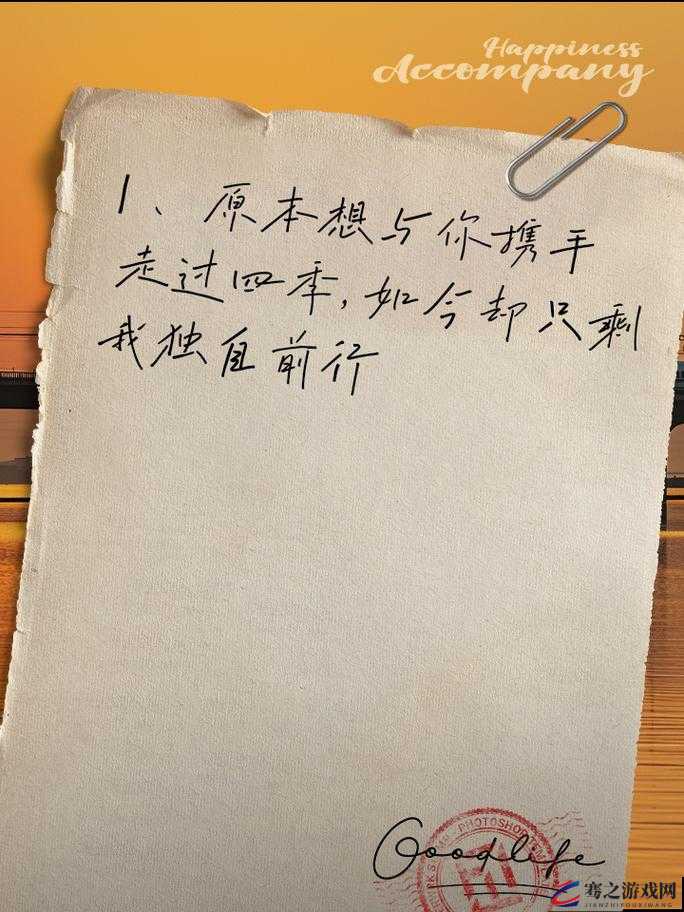 Happiness
Accompany
1、原本想与你携手
走过四季,如今却只剩
我独自前行
PHOTOSHOP
Goodlife
骞之游戏网
JIANZHIYOUXIWANG